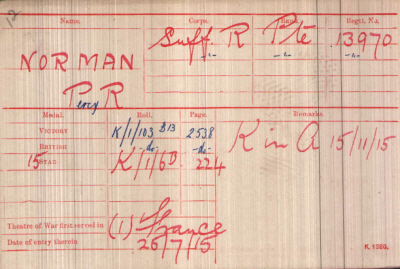 12
Name. Corps. Rank. Regtl. No.
NORMAN Suff. R Pte 13970
-"- -"- -"-
Percy R
Medal. Roll. Page. Remarks.
VICTORY K/1/103 B13 2538 K in A 15/11/15
BRITISH -do- -do-
15 STAR K/1/6D 224
Theatre of War first served in (1) France
Date of entry therein 26/7/15
K. 1380.